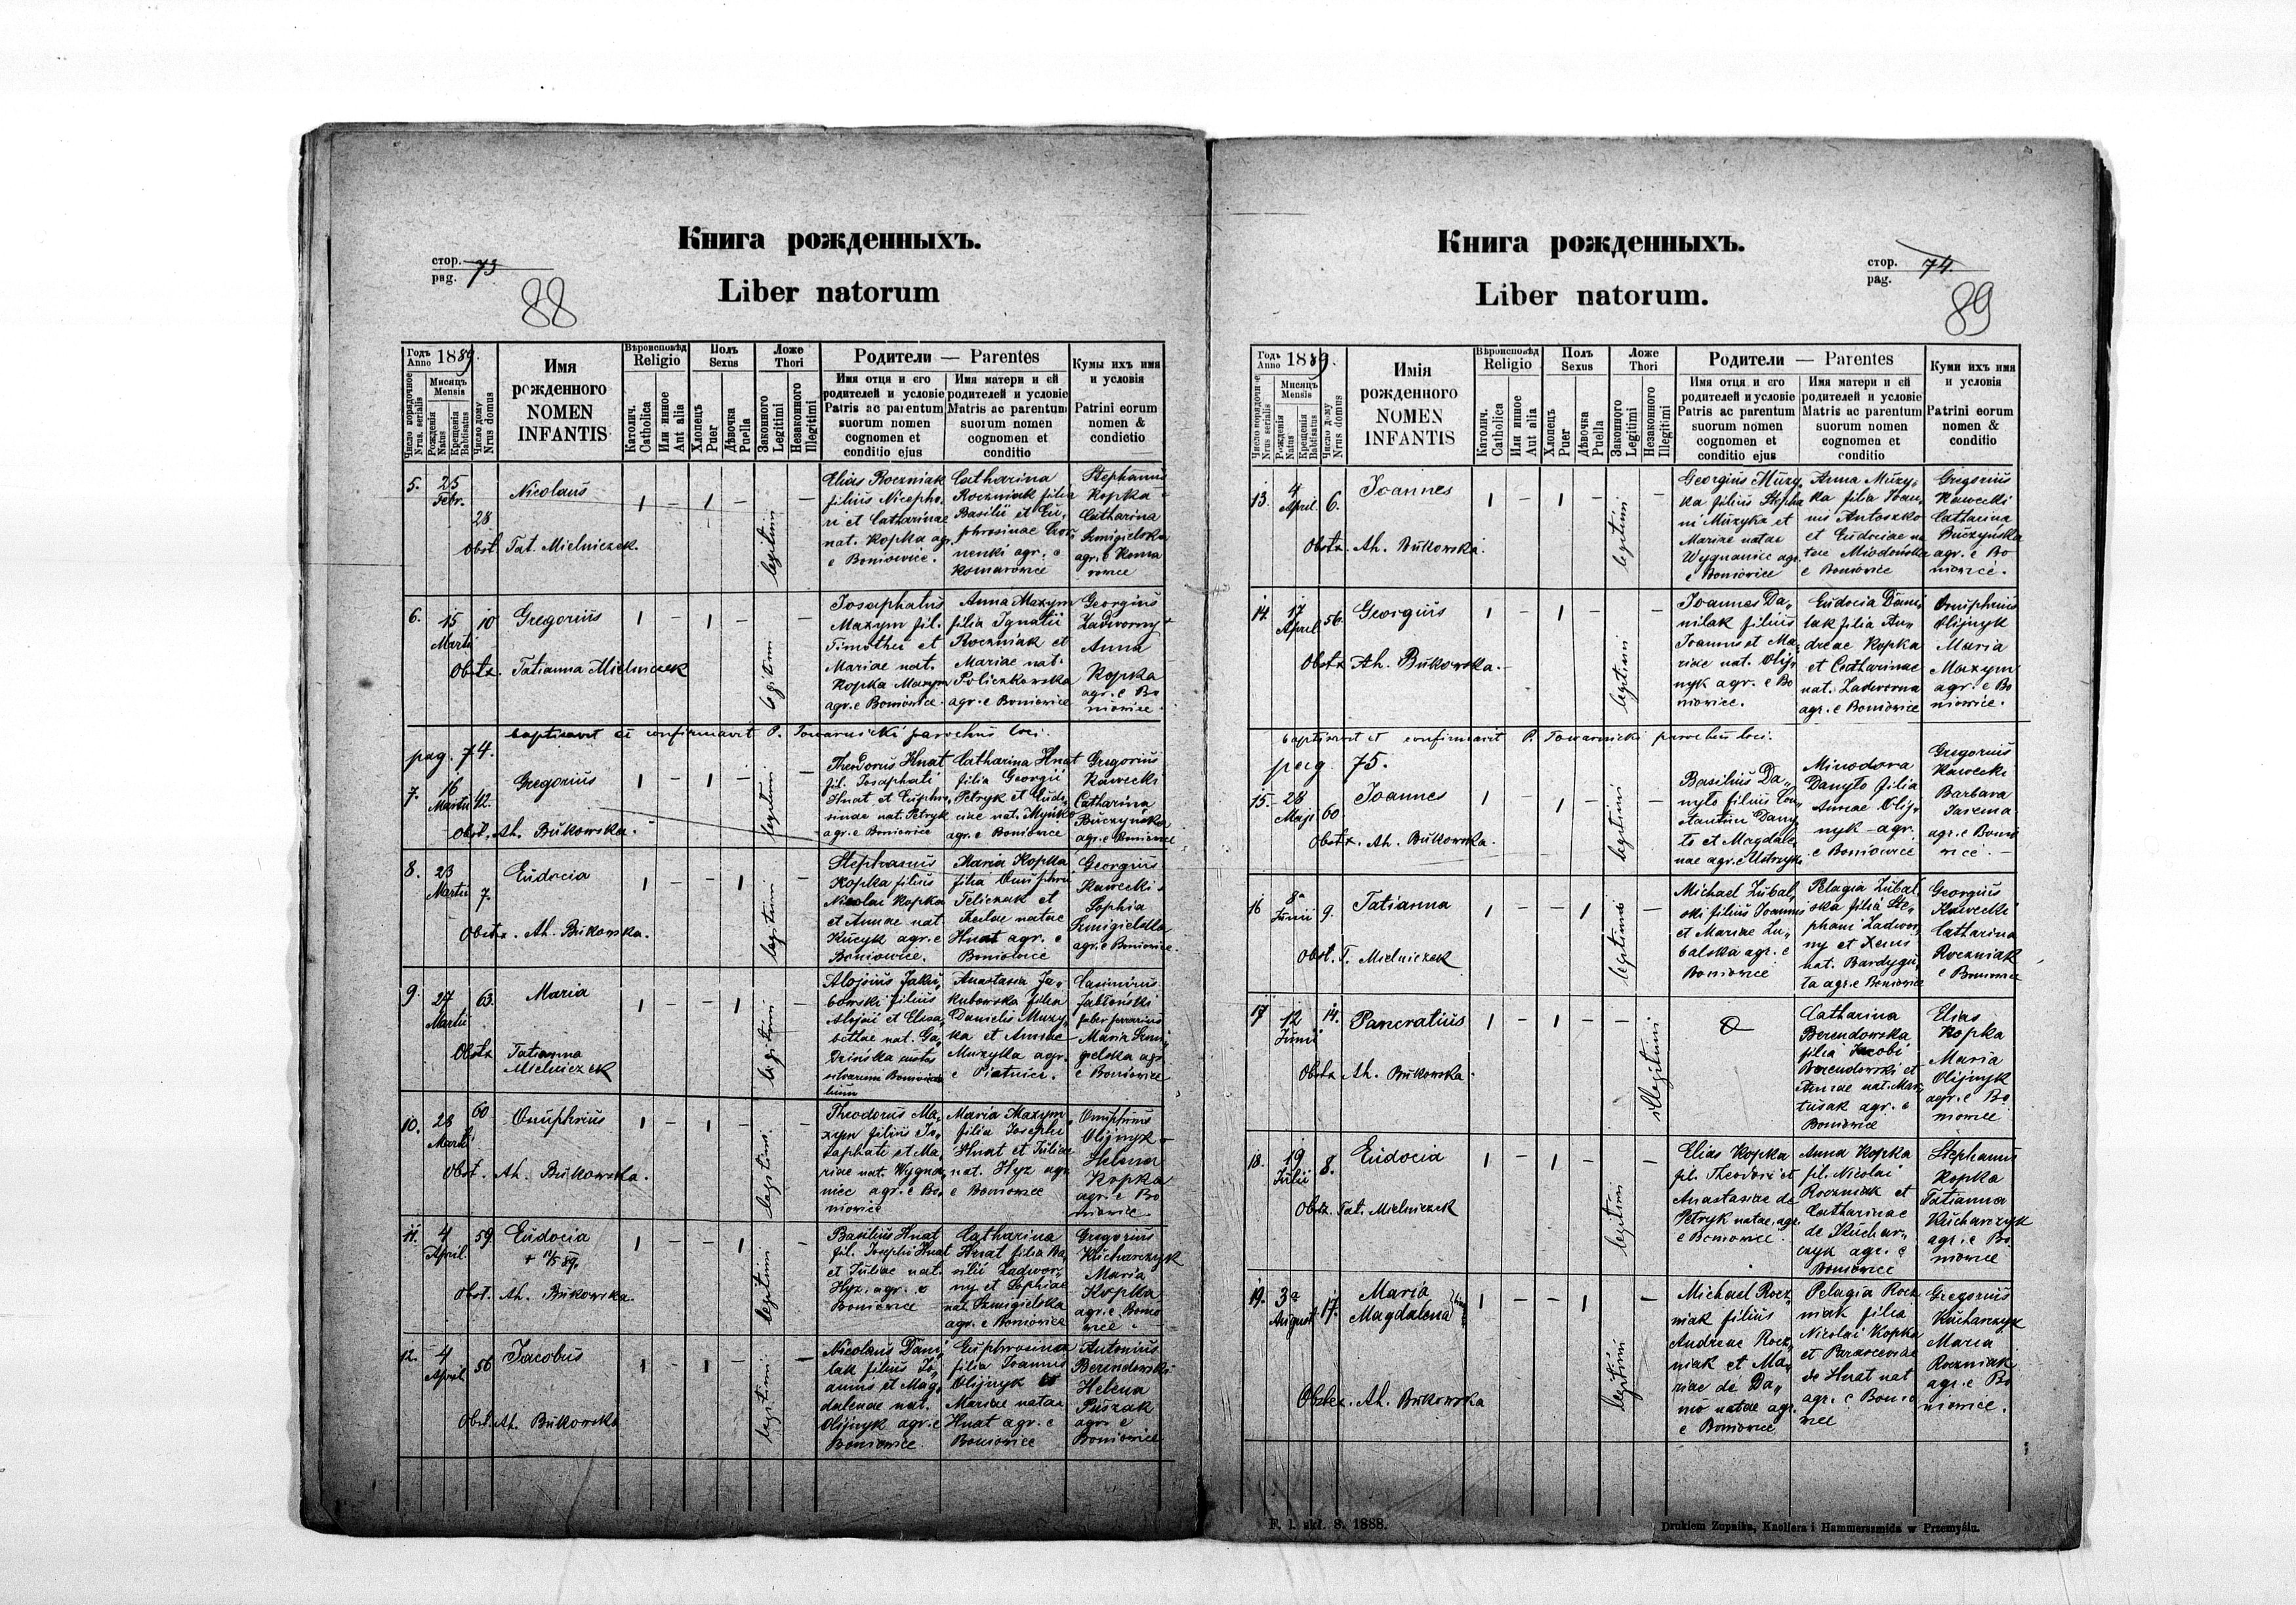 Книга рожденныхъ.
стор. 73
pag.
88
Liber natorum
Годъ Anno 1889.
Число порядочное Nrus. serialis
Мисяцъ Mensis
Рождения Natus
Крещения Babtisatus
Число дому Nrus domus
Имя
рожденного
NOMEN
INFANTIS
Вѣроисповѣд
Religio
Католич. Catholica
Или инное Aut alia
Полъ
Sexus
Хлопецъ Puer
Дѣвочка Puella
Ложе
Thori
Законного Legitimi
Незаконного Illegitimi
Родители — Parentes
Имя отця и его
родителей и условіе
Patris ac parentum
suorum nomen
cognomen et
conditio ejus
Имя матери и ей
родителей и условіе
Matris ac parentum
suorum nomen
cognomen et
conditio
Кумы ихъ имя
и условія
Patrini eorum
nomen &
condictio
5. 25 Febr. 28 Nicolaus 1 – 1 – legitim –
Obst. Tat. Mielniczek.
Elias Roczniak
filius Nicepho,
ri et Catharinae
nat. Kopka agr.
e Boniowice.
Catharina
Roczniak filia
Basilii et Eu,
phrosinae
agr. e
Komarowice
Stephanus
Kopka
Catharina
Szmigielska
agr. e Koma
rowice
6. 15 Martii 10 Gregorius 1 – 1 – legitim –
Obstx. Tatianna Mielniczek
Josaphatus
Maxym fil.
Timothei et
Mariae nat.
Kopka Maxym
agr. e Boniowice.
Anna Maxym
filia Ignatii
Roczniak et
Mariae nat.
Policzkowska
agr. e Boniowice
Georgius
Zadworny
Anna
Kopka
agr. e Bo
niowice.
baptisavit et confirmavit P. Towarnicki parochus loci.
pag. 74.
7. 16 Martii 42. Gregorius 1 – 1 – legitim –
Obst. Ah. Bukowska.
Theodorus Hnat
fil. Josaphati
Hnat et Euphro,
sinae nat. Petryk
agr. e Boniowice
Catharina Hnat
filia Georgii
Petryk et Eudo,
ciae nat. Mynko
agr. e Boniowice
Gregorius
Kawecki
Catharina
Buczynska
agr. e Boniowice
8. 23 Martii 7. Eudocia 1 – – 1 legitim –
Obstx. Ah. Bukowska.
Stephanus
Kopka filius
Nicolai Kopka
et Annae nat
Kucyk agr. e
Boniowice.
Maria Kopka
filia Onuphrii
Teliczak et
Theclae natae
Hnat agr. e
Boniowice
Georgius
Kawecki
Sophia
Szmigielska
agr. e Boniowice.
9. 27 Martii 63. Maria 1 – – 1 legitim –
Obstx Tatianna
Mielniczek
Alojsius Jaku,
bowski filius
Alojsii et Elisa,
bethae nat. Ga,
dzińska custos
silvarum Boniowicen
sium
Anastasia Ja,
kubowska filia
Danielis Muzy,
ka et Annae
Muzyka agr.
e Piatnice.
Casimirus
Jabłoński
faber ferrarius
Maria Szmi,
gielska agr.
e Boniowice
10. 28 Martii 60 Onuphrius 1 – 1 – legitim. –
Obst. Ah. Bukowska.
Theodorus Ma,
xym filius Jo,
saphati et Ma,
riae nat. Wygna,
niec agr. e Bo,
niowice
Maria Maxym
filia Josephi
Hnat et Juliae
nat. Hyz agr.
e Boniowice
Onuphrius
Olijnyk
Helena
Kopka
agr. e Bo
niowice
11. 4 April 59 Eudocia 1 – – 1 legitim –
Obst. Ah. Bukowska.
Basilius Hnat
fil. Josephi Hnat
et Juliae nat.
Hyz. agr. e
Boniowice
Catharina
Hnat filia Ba,
silii Zadwor,
ny et Sophiae
nat. Szmigielska
agr. e Boniowice
Gregorius
Kucharczyk
Maria
Kopka
agr. e Bonio
wice
12. 4 April 56 Jacobus 1 – 1 – legitimi –
Obst. Ah. Bukowska
Nicolaus Dani,
lak filius Jo,
annis et Mag,
dalenae nat.
Olijnyk agr. e
Boniowice.
Euphrosina
filia Joannis
Olijnyk et
Mariae natae
Hnat agr. e
Boniowice
Antonius
Berendowski
Helena
Puszak
agr. e
Boniowice
Книга рожденныхъ.
стор. 74.
pag.
89
Liber natorum.
Годъ Anno 1889.
Число порядочное Nrus serialis
Мисяцъ Mensis
Рождения Natus
Крещения Babtisatus
Число дому Nrus domus
Имія
рожденного
NOMEN
INFANTIS
Вѣроисповѣд
Religio
Католич. Catholica
Или инное Aut alia
Полъ
Sexus
Хлопецъ Puer
Дѣвочка Puella
Ложе
Thori
Законного Legitimi
Незаконного Illegitimi
Родители — Parentes
Имя отця и его
родителей и условіе
Patris ac parentum
suorum nomen
cognomen et
conditio ejus
Имя матери и ей
родителей и условіе
Matris ac parentum
suorum nomen
cognomen et
conditio
Куми ихъ имя
и условія
Patrini eorum
nomen &
conditio
13. 4 April. 6. Joannes 1 – 1 – legitimi –
Obstx. Ah. Bukowska.
Georgius Muzy,
ka filius Stepha
ni Muzyka et
Mariae natae
Wygnaniec agr.
e Boniowice
Anna Muzy,
ka filia Joan,
nis Antoszko
et Eudociae na
tae Miodońska
e Boniowice
Gregorius
Kawecki
Catharina
Buczyńska
agr. e Bo
niowice.
14. 17 April 56. Georgius 1 – 1 – legitimi –
Obstx Ah. Bukowska.
Joannes Da,
nilak filius
Joannis et Ma,
riae nat. Olij,
nyk agr. e Bo
niowice.
Eudocia Dani,
lak filia An,
dreae Kopka
et Catharinae
nat. Zadworna
agr. e Boniowice
Onuphrius
Olijnyk
Maria
Maxym
agr. e Bo
niowice.
baptisavit et confirmavit P. Towarnicki parochus loci.
pag. 75.
15. 28 Maji 60 Joannes 1 – 1 – legitimi –
Obstx. Ah. Bukowska.
Basilius Da,
nyło filius Con,
stantini Dany,
ło et Magdale,
nae agr. e Ustrzyki
Minodora
Danyło filia
Annae Olij,
nyk agr.
e Boniowice
Gregorius
Kawecki
Barbara
Jarema
agr. e Bonio
wice.
16 8a Junii 9. Tatianna 1 – – 1 legitimi –
Obst. T. Mielniczek
Michael Zubal,
ski filius Joannis
et Mariae Zu,
balska agr. e
Boniowice
Pelagia Zubal,
ska filia Ste,
phani Zadwor,
ny et Xenis
nat. Bardygu,
ła agr. e Boniowice
Georgius
Kawecki
Catharina
Roczniak
e Boniowice
17 12 Junii 14. Pancratius 1 – 1 – – illegitimi
Obstx Ah. Bukowska.
Catharina
Berendowska
filia Jacobi
Berendowski et
Annae nat. Mak,
tusak agr. e
Boniowice
Elias
Kopka
Maria
Olijnyk
agr. e Bo
niowice
18. 19 Julii 8. Eudocia 1 – 1 – legitimi –
Obstx. Tat. Mielniczek
Elias Kopka
fil. Theodori et
Anastasiae de
Petryk natae. agr.
e Boniowice.
Anna Kopka
fil. Nicolai
Roczniak et
Catharinae
de Kuchar,
czyk agr. e
Boniowice
Stephanus
Kopka
Tatianna
Kucharczyk
agr. e Bo
niowice
19. 3a August. 17. Maria
Magdalena 1 – – 1 legitimi –
Obstex. Ah. Bukowska
Michael Rocz,
niak filius
Andreae Rocz,
niak et Ma,
riae de Da,
nio natae agr.
e Boniowice
Pelagia Rocz
niak filia
Nicolai Kopka
et Parasceviae
de Hnat nat
agr. e Bonio
wice
Gregorius
Kucharczyk
Maria
Roczniak
agr. e Bo
niowice.
F. 1. skł. 8. 1888.
Drukiem Żupnika, Knollera i Hammerszmida w Przemyślu.